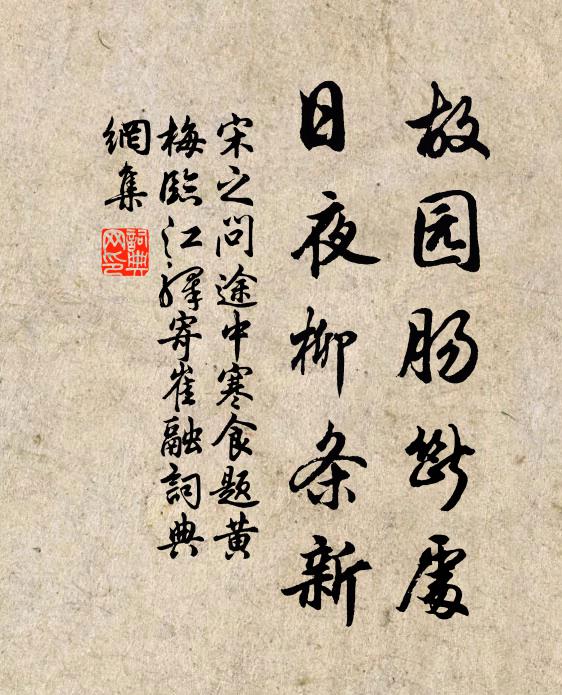 故园肠断處
日夜柳条新
宋之问途中寒食题黄
梅臨江驛寄崔融詞典
網集
詞典
网印